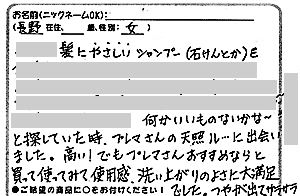 お名前(ニックネームOK):
(長野 在住、 歳、性別: 女 )
髪にやさしい シャンプー(石けんとか)を
何かいいものないかな〜
と探していた時、プレマさんの天照ルーに出会い
ました。高い!でもプレマさんおすすめならと
買って使ってみて使用感、洗い上がりのよさに大満足
●ご希望の商品に○をお付けください! でした。ツヤが出てサラサラ